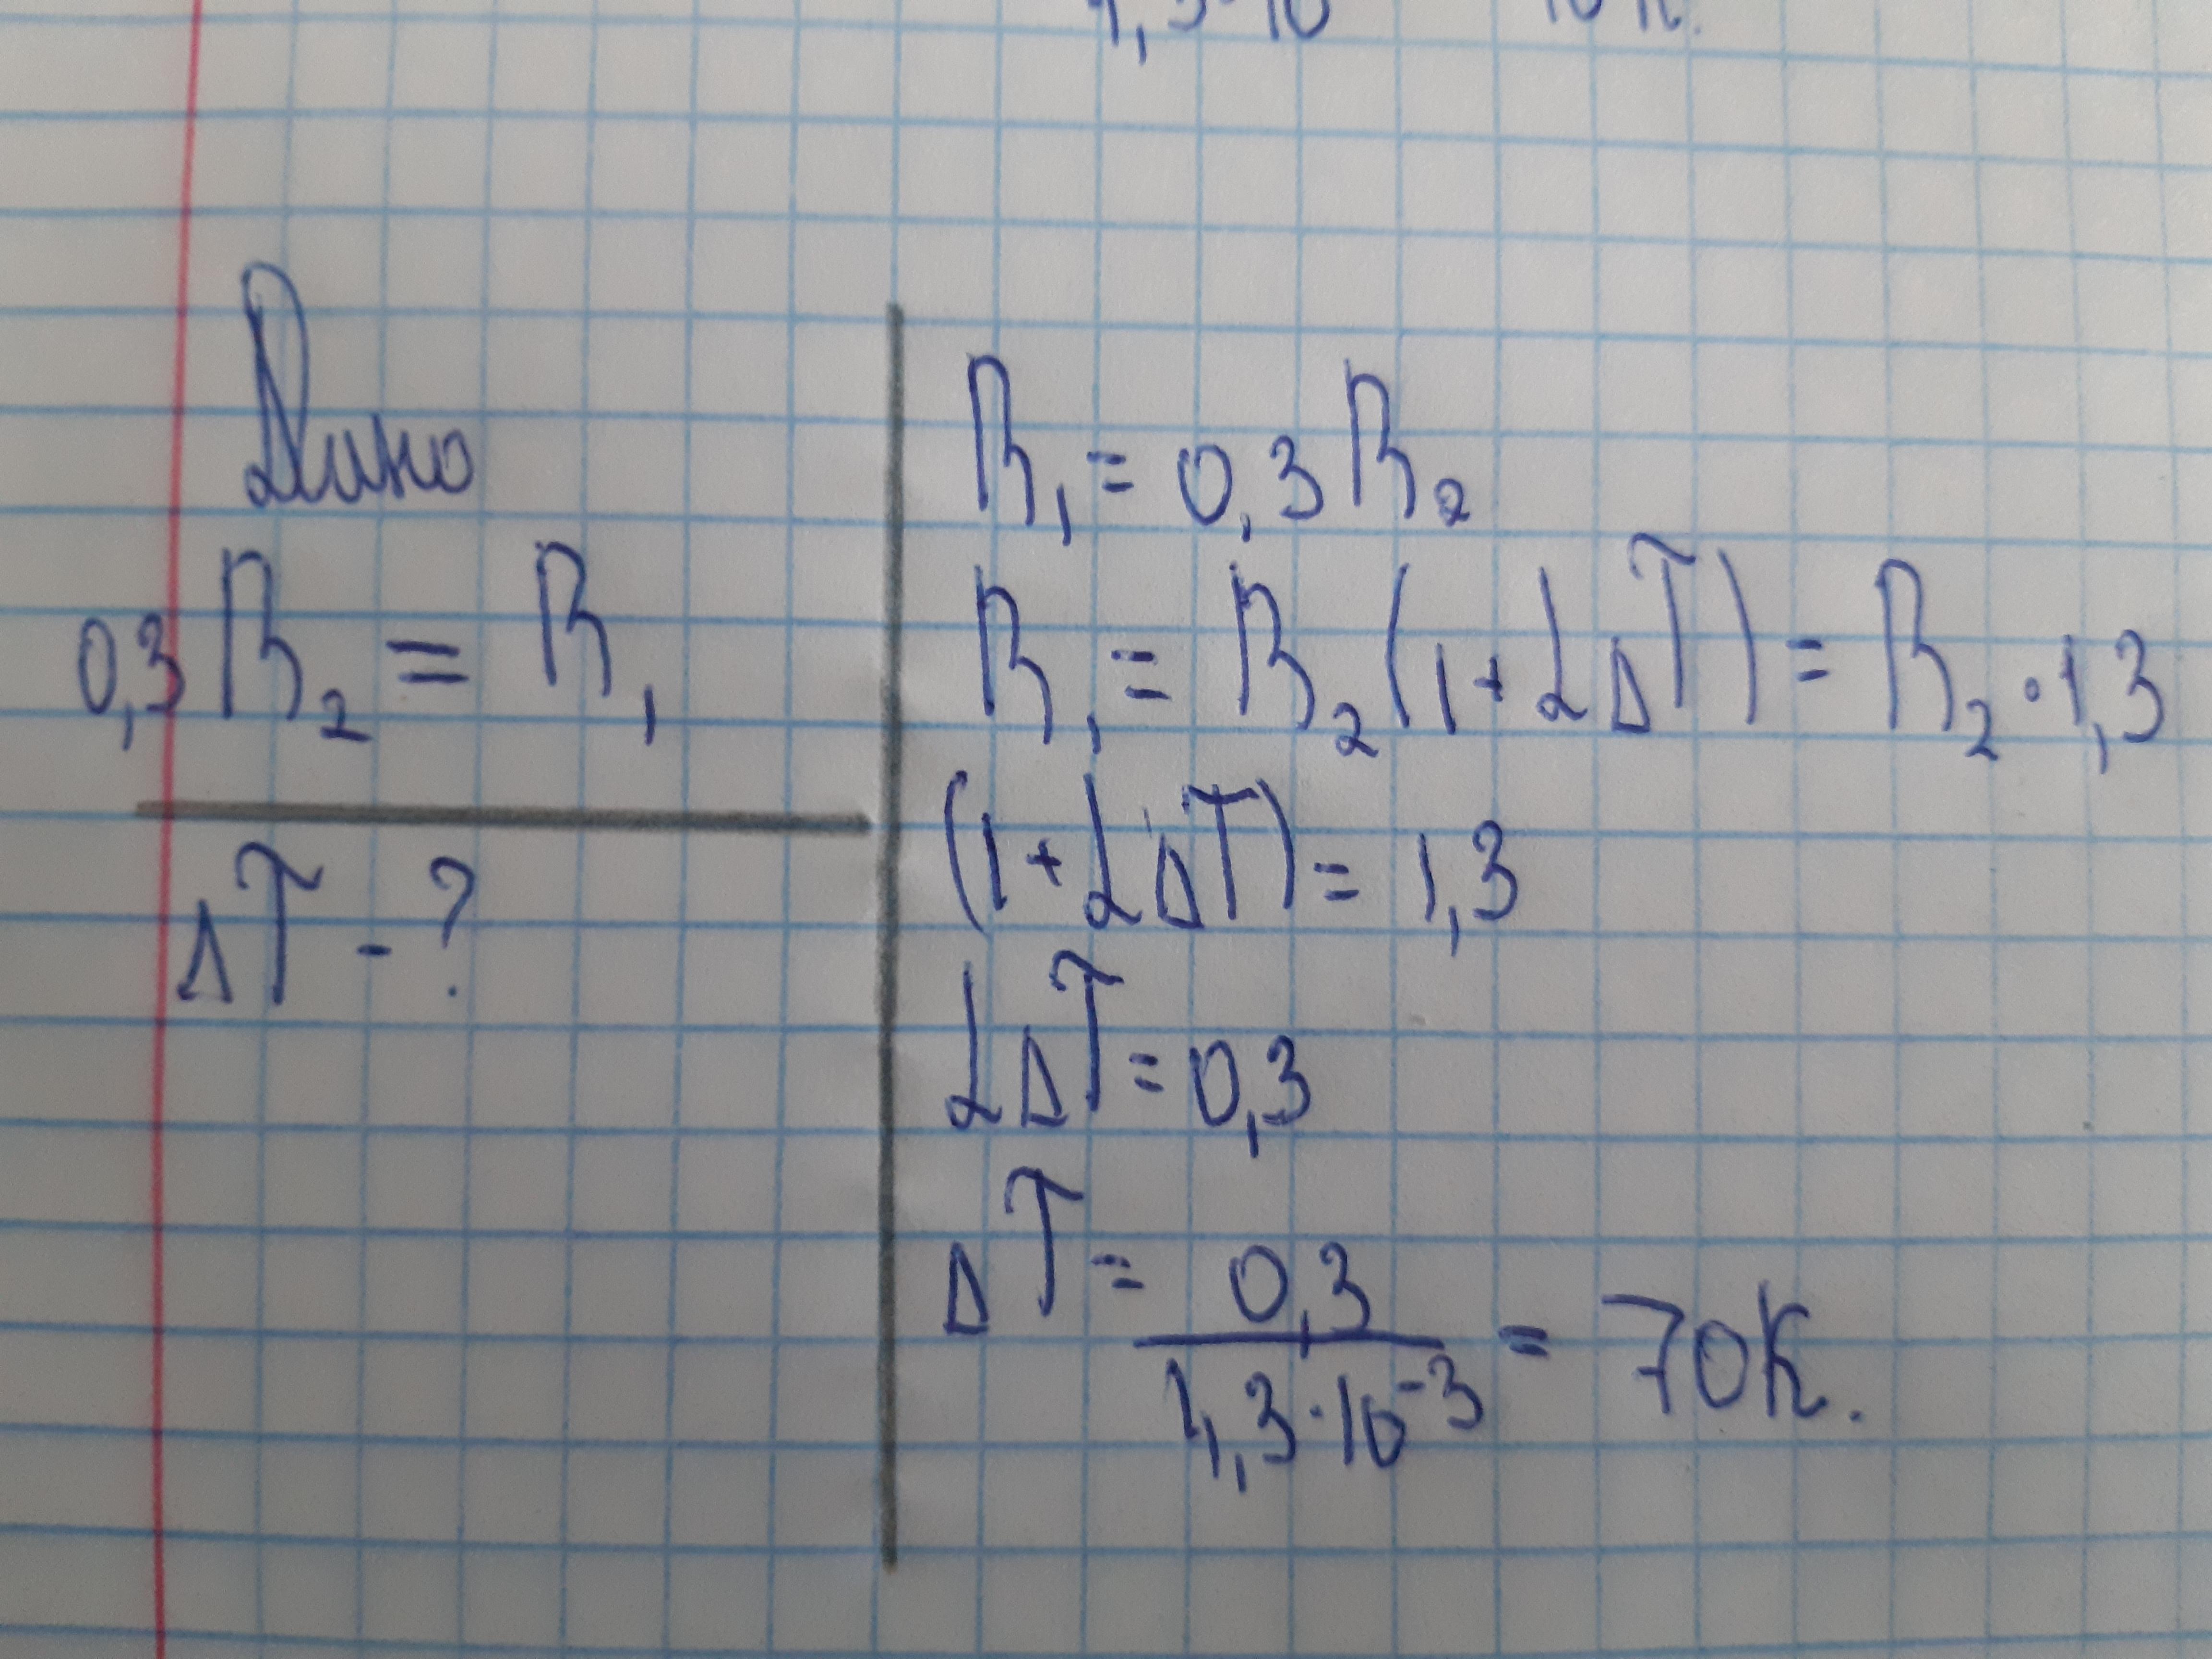 Дано
0,3 R₂ = R₁
ΔT - ?
R₁ = 0,3 R₂
R₁ = R₂ (1 + αΔT) = R₂ · 1,3
(1 + αΔT) = 1,3
αΔT = 0,3
ΔT = 0,3 / 4,3 · 10⁻³ = 70 К.